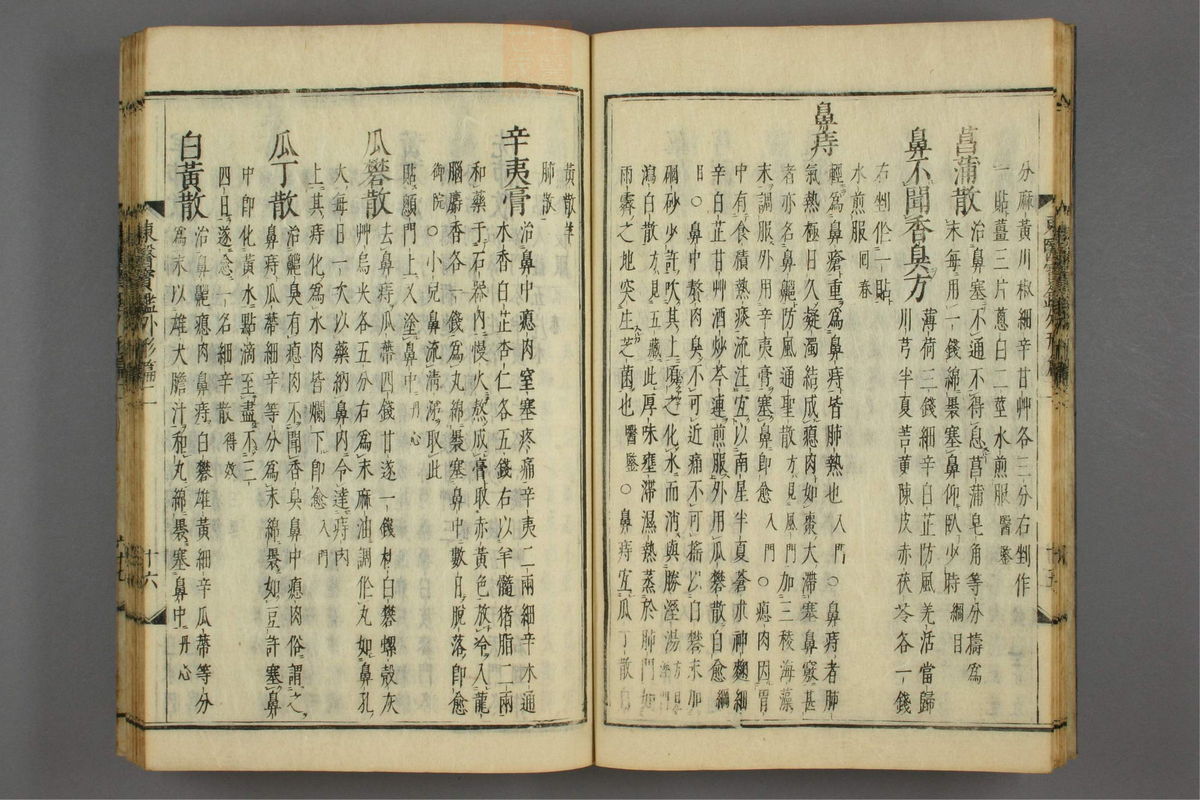 分麻黃川椒細辛甘艸各三分右剉作
一貼薑三片蔥白二莖水煎服醫鑒
菖蒲散治鼻塞不通不得息菖蒲皂角等分擣爲
末每用一錢綿褁塞鼻仰臥少時綱目
鼻不聞香臭方薄荷三錢細辛白芷防風羌活當歸
川芎半夏陳皮赤茯苓各一錢
右剉作一貼
水煎服回春
鼻痔輕爲鼻瘡重爲鼻痔皆肺熱也入門○鼻痔者肺
氣熱極日久凝濁結成瘜肉如棗大滯塞鼻竅甚
者亦名鼻齆防風通聖散方見風門加三稜海藻
末調服外用辛夷膏塞鼻卽愈入門○瘜肉因胃
中有食積熱痰流注宜以南星半夏蒼朮神麴細
辛白芷甘艸酒炒芩連煎服外用瓜礬散自愈綱
目○鼻中瘜肉臭不可近痛不可搖以白礬末加
硇砂少許吹其上頃之化水而消與勝溼湯方見
瀉白散方見五藏此厚味壅滯濕熱蒸於肺門如
雨霽之地突生芝菌也醫鑒○鼻痔宜瓜丁散白
黃散羊
肺散
辛夷膏治鼻中瘜肉窒塞疼痛辛夷二兩細辛木通
木香白芷杏仁各五錢右以羊髓猪脂二兩
和藥于石器內慢火熬成膏取赤黃色放冷入龍
腦麝香各一錢爲丸綿褁塞鼻中數日脫落卽愈
御院○小兒鼻流淸涕取此
貼顖門上又塗鼻中丹心
瓜礬散去鼻痔瓜蔕四錢甘遂一錢枯白礬螺殼灰
艸烏尖各五分右爲末麻油調作丸如鼻孔
大每日一次以藥納鼻內令達痔肉
上其痔化爲水肉皆爛下卽愈入門
瓜丁散治齆臭有瘜肉不聞香臭鼻中瘜肉俗謂之
鼻痔瓜蔕細辛等分爲末綿褁如豆許塞鼻
中卽化黃水點滴至盡不三
四日遂愈一名細辛散得效
白黃散治鼻齆瘜肉鼻痔白礬雄黃細辛瓜蔕等分
爲末以雄犬膽汁和丸綿褁塞鼻中丹心
東醫寶鑑外形篇二
十六